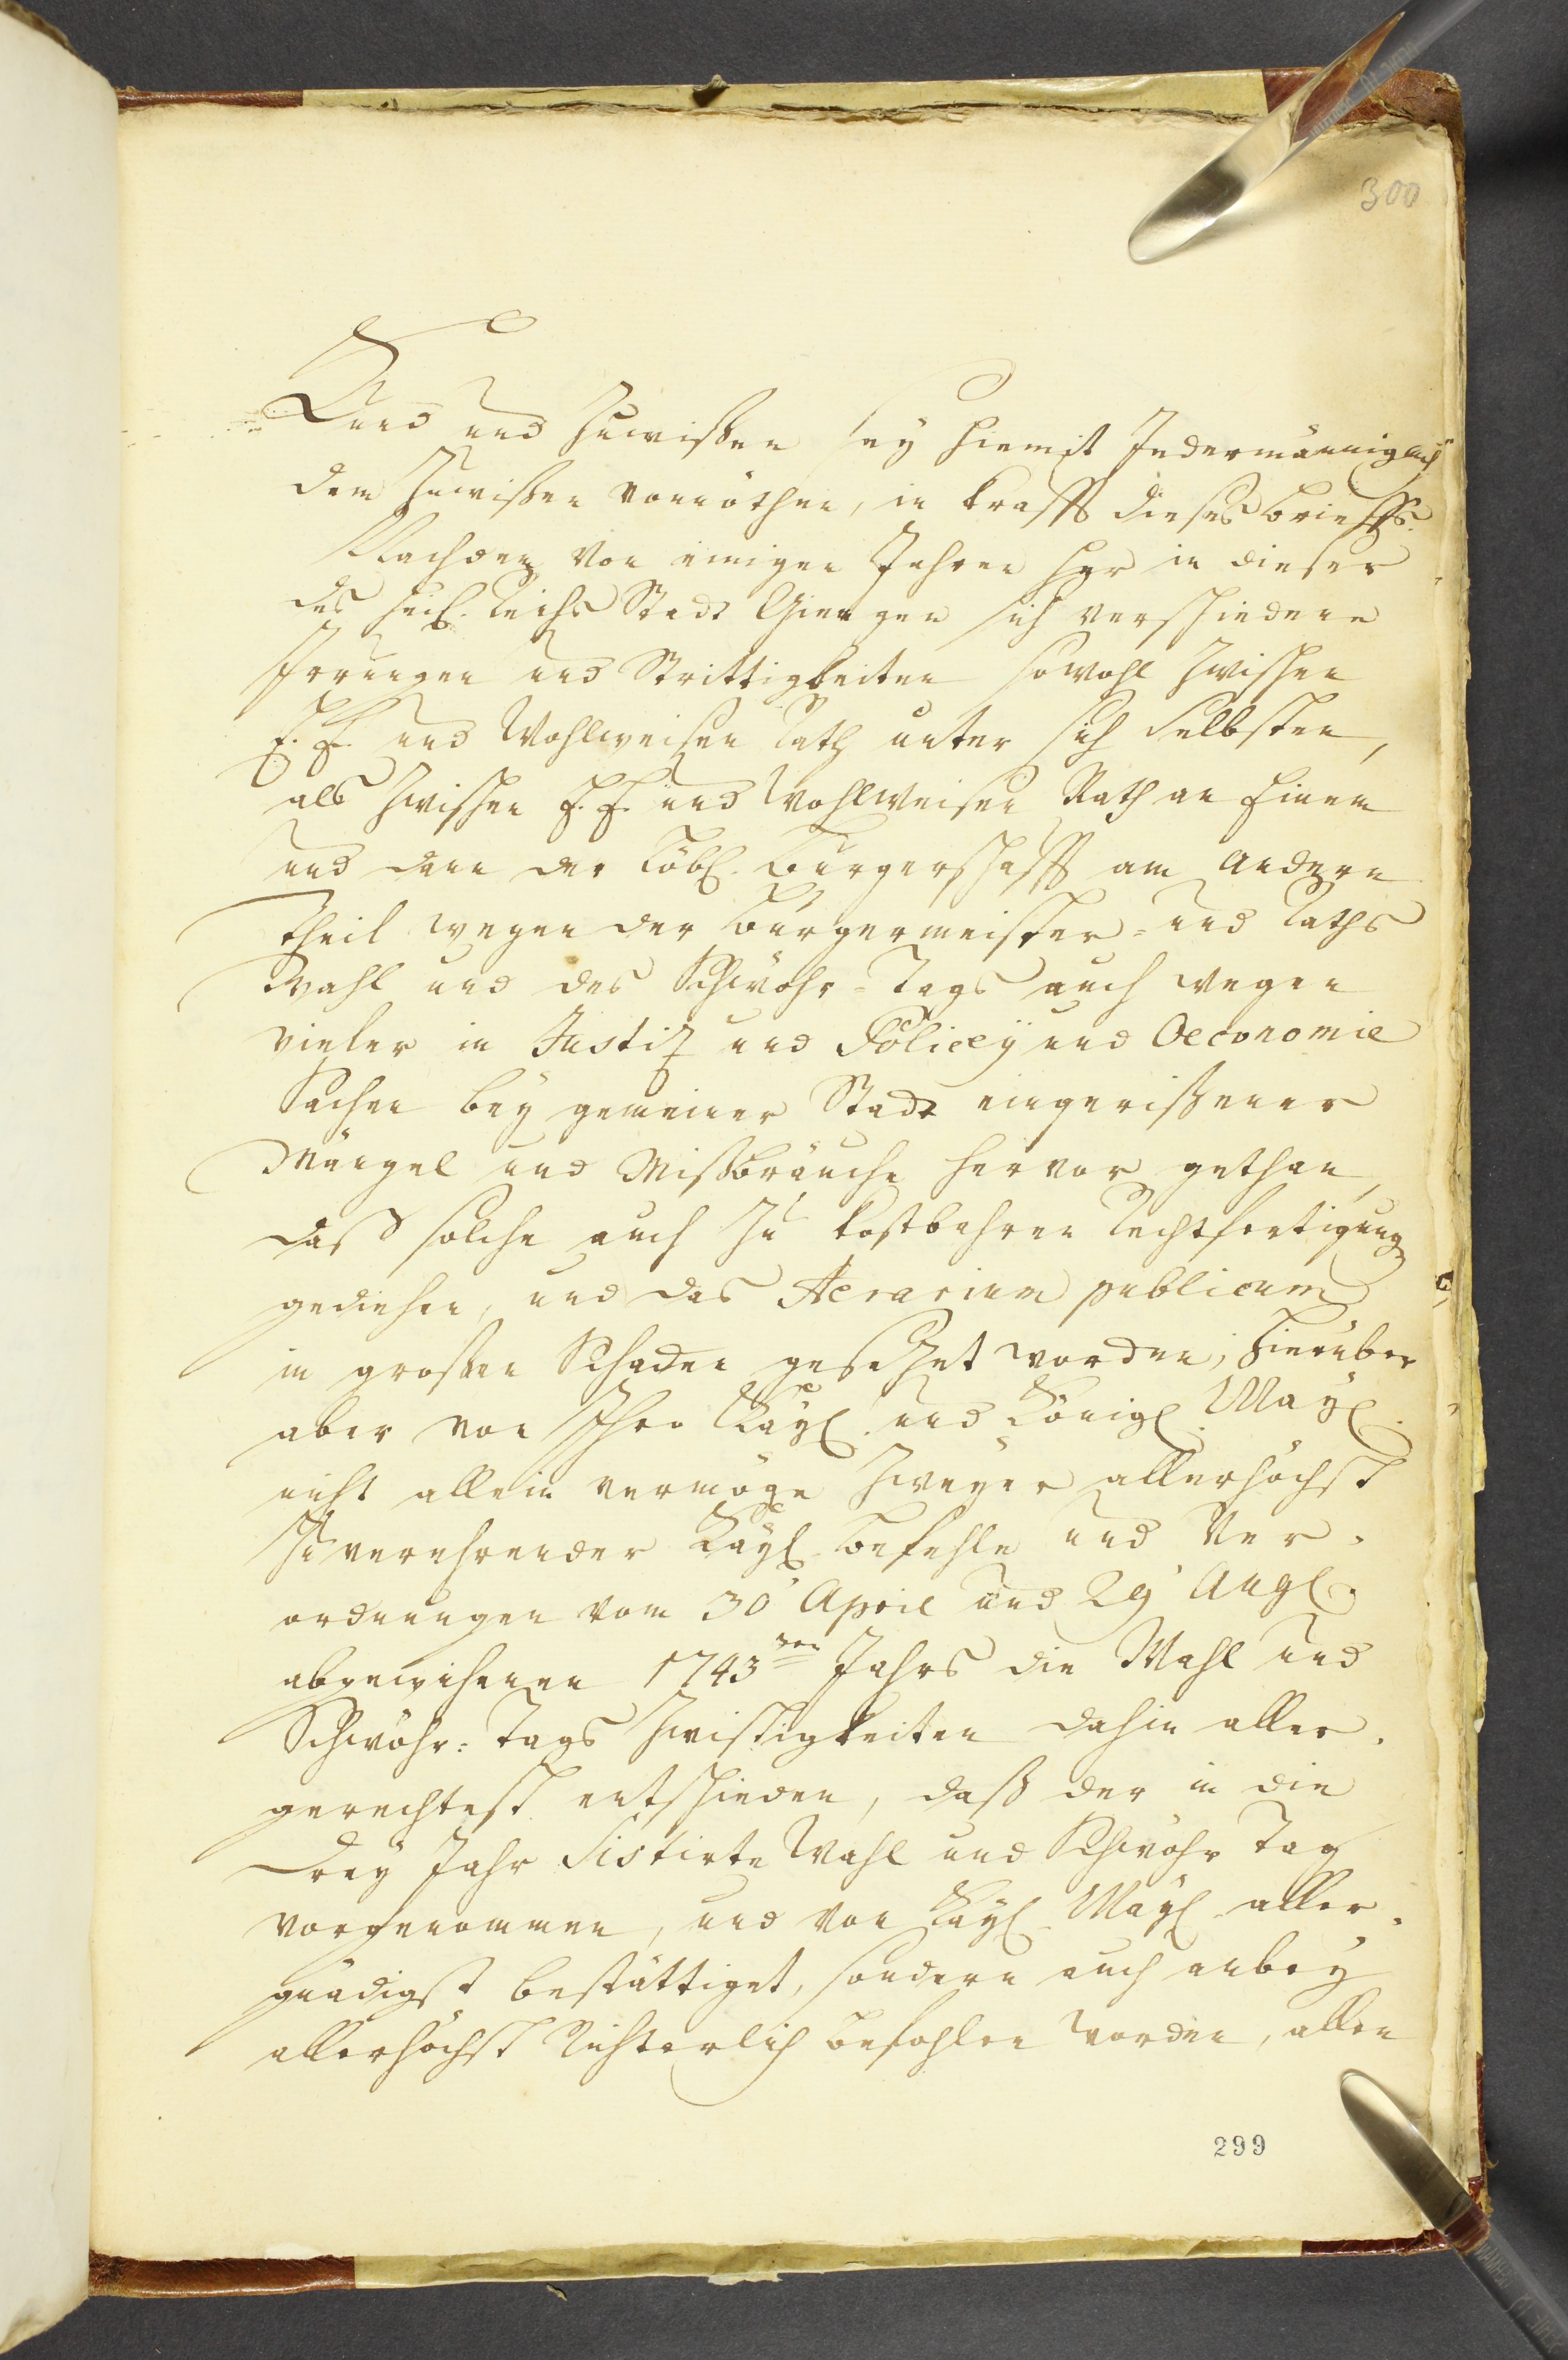 300
Kund und Zuwißen seÿ hiemit Jedermänniglich
dem Zuwißen vonnöthen, in krafft dieses brieffs.
Nachdem Von einigen Jahren her in dieser
des heil. Reichs Stadt Giengen sich verschiedene
Irrungen und Strittigkeiten sowohl zwischen
E. E. und Wohlweisen Rath unter sich Selbsten,
als zwischen E. E. und Wohlweisen Rath an Einem
und dann der Löbl. Burgerschafft am andern
Theil wegen der Burgermeister- und Raths
Wahl und des Schwöhr-Tags auch wegen
vieler in Justiz und Policeÿ und Oeconomie
Sachen beÿ gemeiner Stadt eingerißener
Mängel und Mißbräuche hervor gethan,
daß solche auch zu kostbahren Rechtfertigung
gediehen, und das Aerarium publicum
in großen Schaden gesezet worden, hierüber
aber von Ihro Kaÿl. und Königl. Maÿl.
nicht allein vermöge zweÿer allerhöchst
zuverehrender Kaÿl. befehle und Ver-
ordnungen vom 30' April und 29' Augl.
abgewichenen 1743ten Jahrs die Wahl und
Schwöhr-Tags Zwistigkeiten dahin aller-
gerechtest entschieden, daß der in die
dreÿ Jahr Sistirte Wahl und Schwöhr Tag
vorgenommen, und von Kaÿl. Maÿl. aller-
gnädigst bestättiget, sondern auch anbeÿ
allerhöchst Richterlich befohlen worden, allen
299